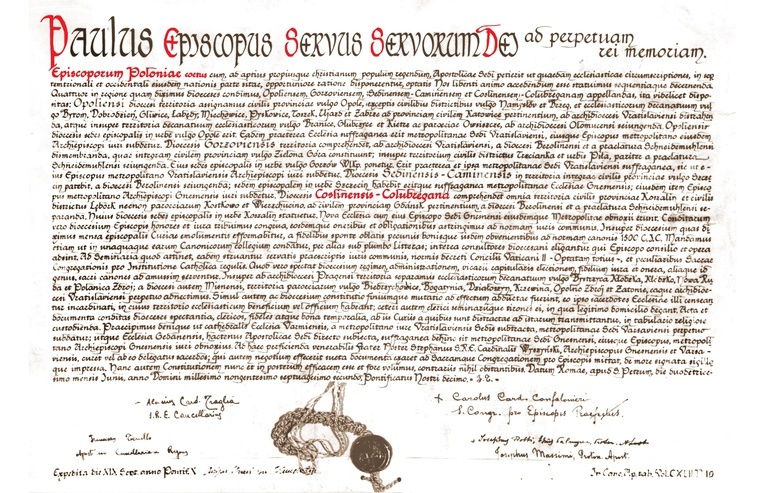 Paulus Episcopus Servus Servorum Dei ad perpetuam
rei memoriam.
Episcoporum Poloniae coetus cum, ad aptius propiusque christianum populum regendum, Apostolicae Sedi petierit ut quaedam ecclesiasticae circumscriptiones, in sep
temtrionali et occidentali eiusdem nationis parte sitae, opportuniore ratione disponerentur, optatis Nos libenti animo accedendum esse statuimus sequentiaque decernenda.
Quattuor in regione quam diximus dioeceses condimus, Opoliensem, Gorzoviensem, Sedinensem-Caminensem et Coslinensem-Colubreganam appellandas, ita videlicet dispo
sitas: Opoliensi dioecesi territoria assignamus civilis provinciae vulgo Opole, exceptis civilibus districtibus vulgo Namysłów et Brzeg, et ecclesiasticorum decanatuum vul
go Bytom, Dobrodzień, Gliwice, Łabędy, Miechowice, Pyskowice, Toszek, Ujazd et Zabrze ad provinciam civilem Katowice pertinentium, ab archidioecesi Vratislaviensi distrahen
da, atque insuper territoria decanatuum ecclesiasticorum vulgo Branice, Głubczyce et Kietrz ac paroeciae Owsiszcze, ab archidioecesi Olomucensi seiungenda. Opoliensis
dioecesis sedes episcopalis in urbe vulgo Opole erit. Eadem praeterea Ecclesia suffraganea erit metropolitanae Sedis Vratislaviensis, eiusque Episcopus metropolitano
Archiepiscopi iuri subdetur. Dioecesis Gorzoviensis territoria comprehendet, ab archidioecesi Vratislaviensi, a dioecesi Berolinensi et a praelatura Schneidemuhlensi
dismembranda, quae integram civilem provinciam vulgo Zielona Góra constituunt; insuper territoria civilis districtus Trzcianka et urbis Piła, partita a praelatura
Schneidemuhlensi seiungenda. Eius sedes episcopalis in urbe vulgo Gorzów Wlkp. ponetur. Erit praeterea et ipsa metropolitanae Sedis Vratislaviensis suffraganea, ac
ius Episcopus metropolitano Vratislaviensis Archiepiscopi iuri subdetur. Dioecesis Sedinensis-Caminensis territoria integrae civilis provinciae vulgo Szcze
cin parebit, a dioecesi Berolinensi seiungenda; sedem episcopalem in urbe Szczecin habebit eritque suffraganea metropolitanae Ecclesiae Gnesnensis; eiusdem item Episco
pus metropolitano Archiepiscopi Gnesnensis iuri subdetur. Dioecesis Coslinensis-Colubregana comprehendet omnia territoria civilis provinciae Koszalin et civilis
districtus Lębork necnon paroeciarum Kostkowo et Wierzchucino ad civilem provinciam Gdańsk pertinentium, a dioecesi Berolinensi et a praelatura Schneidemuhlensi se
paranda. Huius dioecesis sedes episcopalis in urbe Koszalin statuetur. Nova Ecclesia cum eius Episcopo Sedi Gnesnensi eiusdemque Metropolitae obnoxii erunt. Conditarum
vero dioecesium Episcopis honores et iura tribuimus congrua, eosdemque oneribus et obligationibus astringimus ad normam iuris communis. Insuper dioecesium quas di
ximus mensa episcopalis Curiae emolumentis efformabitur, a fidelibus sponte oblatis pecuniis bonisque iisdem obvenientibus ad normam canonis 1500 C.I.C. Mandamus
etiam ut in unaquaque earum Canonicorum collegium condatur, per alias sub plumbo Litteras; interea consultores dioecesani eligantur qui Episcopo consilio et opera
adsint. Ad Seminaria quod attinet, eadem struantur servatis praescriptis iuris communis, normis decreti Concilii Vaticani II - Optatam totius -, et peculiaribus Sacrae
Congregationis pro Institutione Catholica regulis. Quod vero spectat dioecesium regimen, administrationem, vicarii capitularis electionem, fidelium iura et onera, aliaque id
genus, sacri canones serventur. Insuper ab archidioecesi Pragensi territoria separamus ecclesiasticorum decanatuum vulgo Bystrzyca Kłodzka, Kłodzko, Nowa Ru
da et Polanica Zdrój; a dioecesi autem Misnensi, territoria paroeciarum vulgo Biedrzychowice, Bogatynia, Działoszyn, Krzewina, Opolno Zdrój et Zatonie, eaque archidioe
cesi Vratislaviensi perpetuo adnectimus. Simul autem ac dioecesium constitutio finiumque mutatio ad effectum adductae fuerint, eo ipso sacerdotes Ecclesiae illi censean
tur incardinati, in cuius territorio ecclesiasticum beneficium vel officium habeant; ceteri autem clerici seminariique tirones ei, in qua legitimo domicilio degant. Acta et
documenta conditas dioeceses spectantia, clericos, fideles atque bona temporalia, ad iis Curiis a quibus sunt distractae ad istarum transmittantur, in tabulario religiose
custodienda. Praecipimus denique ut cathedralis Ecclesia Varmiensis, a metropolitano iure Vratislaviensis Sedis subtracta, metropolitanae Sedis Varsaviensi perpetuo
subdatur; utque Ecclesia Gedanensis, hactenus Apostolicae Sedi directo subiecta, suffraganea dehinc sit metropolitanae Sedis Gnesnensis, eiusque Episcopus, metropoli
tano Archiepiscopi Gnesnensis iuri obnoxius. Ad haec perficienda venerabilis Frater Noster Stephanus S.R.E. Cardinalis Wyszyński, Archiepiscopus Gnesnensis et Varsa-
viensis, curet vel ab eo delegatus sacerdos; qui autem negotium effecerit sueta documenta exaret ad Sacramque Congregationem pro Episcopis mittat, de more signata sigillo
que impressa. Hanc autem Constitutionem nunc et in posterum efficacem esse et fore volumus, contrariis nihil obstantibus. Datum Romae, apud S. Petrum, die duodetrice-
simo mensis Iunii, anno Domini millesimo nongentesimo septuagesimo secundo, Pontificatus Nostri decimo.
Aloisius Card. Traglia
S.R.E. Cancellarius
+ Carolus Card. Confalonieri
S. Congr. pro Episcopis Praefectus.
Franciscus Tinello
Apostolicam Cancellariam Regens
Josephus Massimi, Proton. Apost.
Expedita die XIX Sept. anno Pontif. X
In Canc. Ap. tab. Vol. CXLI N. 10